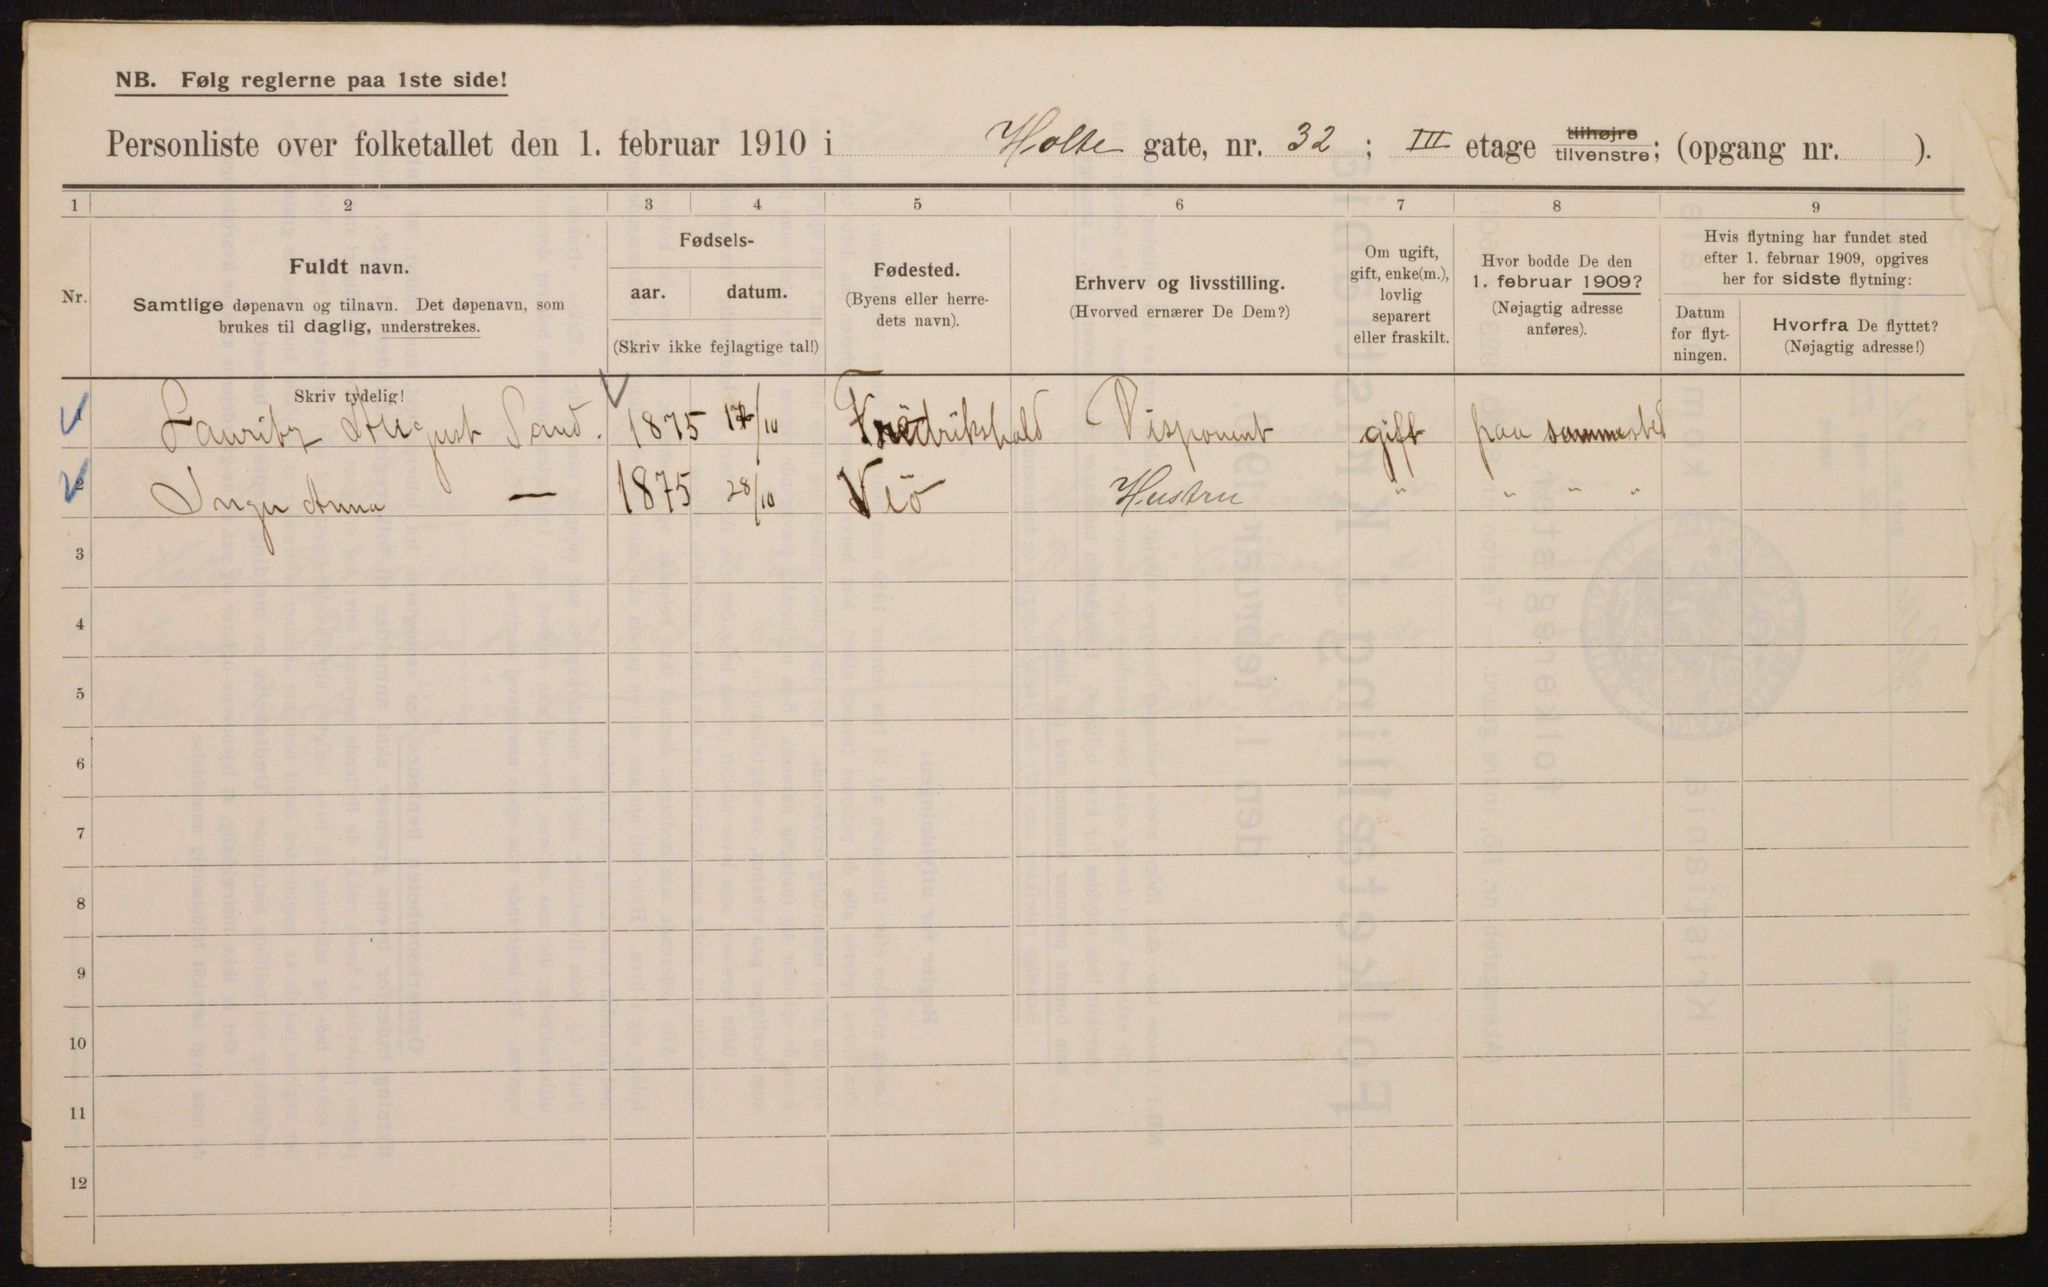 NB. Følg reglerne paa 1ste side!
Personliste over folketallet den 1. februar 1910 i Holte gate, nr. 32 ; III etage tilhøjre tilvenstre; (opgang nr. ).
1 2 3 4 5 6 7 8 9
Nr.
Fuldt navn.
Samtlige døpenavn og tilnavn. Det døpenavn, som
brukes til daglig, understrekes.
Fødsels-
aar. datum.
(Skriv ikke fejlagtige tal!)
Fødested.
(Byens eller herre-
dets navn).
Erhverv og livsstilling.
(Hvorved ernærer De Dem?)
Om ugift,
gift, enke(m.),
lovlig
separert
eller fraskilt.
Hvor bodde De den
1. februar 1909?
(Nøjagtig adresse
anføres).
Hvis flytning har fundet sted
efter 1. februar 1909, opgives
her for sidste flytning:
Datum
for flyt-
ningen.
Hvorfra De flyttet?
(Nøjagtig adresse!)
Skriv tydelig!
1 Lauritz August Sand. 1875 17/10 Fredrikshald Disponent gift paa sammested
2 Inga Anna — 1875 28/10 Hustru " " " "
3
4
5
6
7
8
9
10
11
12